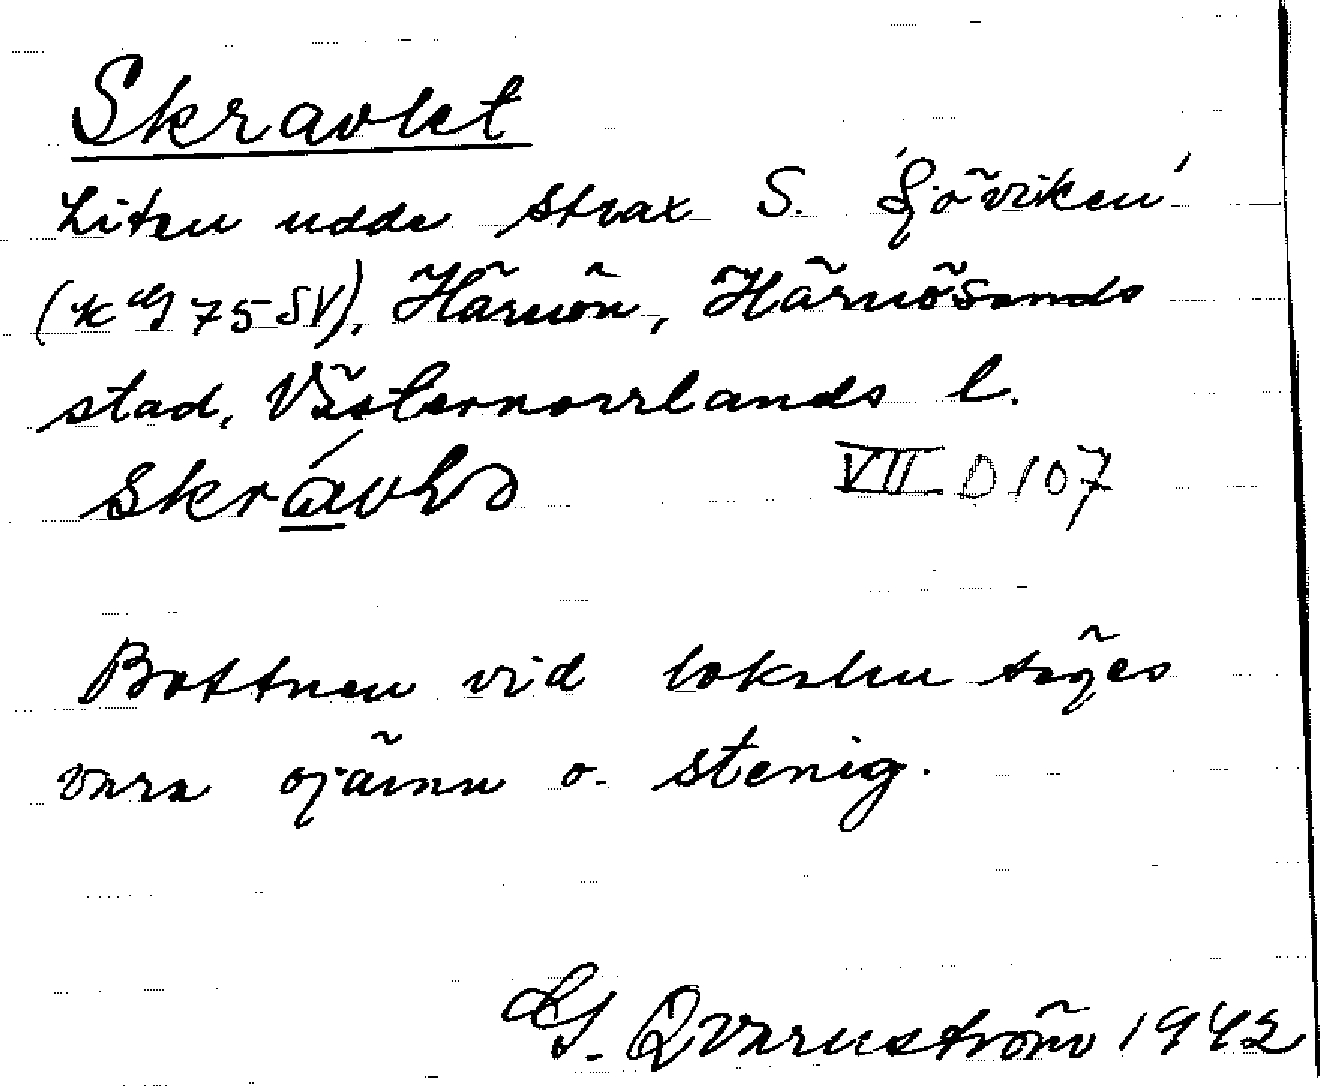 Skravlet
Liten udde strax S. 'Sjöviken'
75 SV), Härnön, Härnösands
stad, Västernorrlands l.
VII D 107
Bottnen vid lokalen säges
vara ojämn o. stenig.
G. Qvarnström 1942